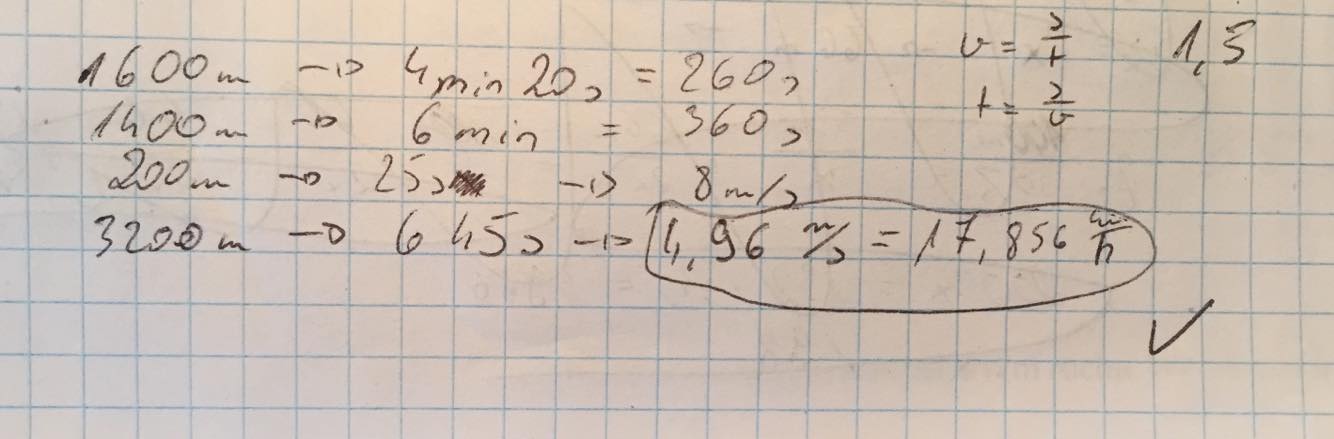 1600m → 4min 20s = 260s
1400m → 6min = 360s
200m → 25s → 8m/s
3200m → 645s → 4,96 m/s = 17,856 km/h
v = s/t
t = s/v
1,3